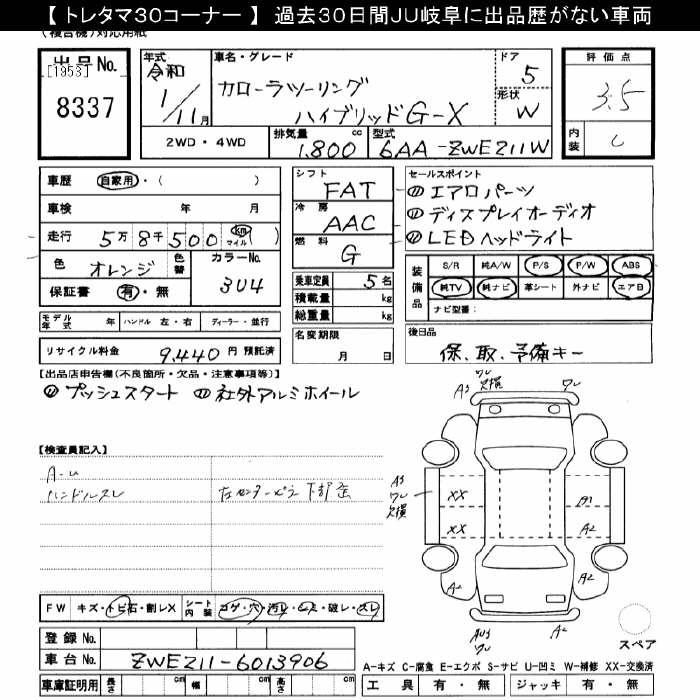 【 トレタマ30コーナー 】 過去30日間JU岐阜に出品歴がない車両
(複合機)対応用紙
出品No.
[1953]
8337
年式
令和
1/11月
車名・グレード
カローラツーリング
ハイブリッドG-X
ドア
5
形状
W
評価点
3.5
内装
C
2WD・4WD
排気量 cc
1,800
型式
6AA-ZWE211W
車歴 自家用・( )
車検 年 月
走行 5万8千500 km マイル ( )
色 オレンジ 色替
カラーNo.
3U4
保証書 有・無
モデル年式 年 ハンドル 左・右 ディーラー・並行
リサイクル料金 9,440円 預託済
シフト
FAT
冷房
AAC
燃料
G
乗車定員 5名
積載量 kg
総重量 kg
名変期限
月 日
セールスポイント
⑪エアロパーツ
⑪ディスプレイオーディオ
⑪LEDヘッドライト
装備品
S/R 純A/W P/S P/W ABS
純TV 純ナビ 革シート 外ナビ エアB
ナビ型番:
後日品
保、取、予備キー
【出品店申告欄(不良箇所・欠品・注意事項等)】
⑪プッシュスタート ⑪社外アルミホイール
【検査員記入】
A-U
ハンドルスレ
左センターピラー下部歪
FW キズ・トビ石・割レX
シート内装 コゲ・穴・汚レ・シミ・破レ・スレ
登録No.
車台No. ZWE211-6013906
車庫証明用 長さ cm 幅 cm 高さ cm
A3 ワレ 欠損
ワレ
A3
ワレ
欠損
XX
XX
A1
A2
A2
A2
AU3
ワレ
スペア
A-キズ C-腐食 E-エクボ S-サビ U-凹ミ W-補修 XX-交換済
工具 有・無 ジャッキ 有・無